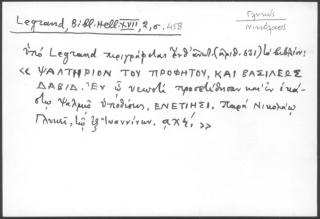 Γλυκύς
Νικόλαος
Legrand, Bibl. Hell. XVII, 2, σ. 458
ὑπὸ Legrand περιγράφεται (ἀριθ. 631) τὸ βιβλίον:
« ΨΑΛΤΗΡΙΟΝ ΤΟΥ ΠΡΟΦΗΤΟΥ, ΚΑΙ ΒΑΣΙΛΕΩΣ
ΔΑΒΙΔ. Ἐν ᾧ νεωστὶ προσετέθησαν καὶ ἐν ἑκά-
στῳ Ψαλμῷ ὑποθέσεις, ΕΝΕΤΙΗΣΙ, παρὰ Νικολάῳ
Γλυκεῖ, τῷ ἐξ Ἰωαννίνων. αχ »